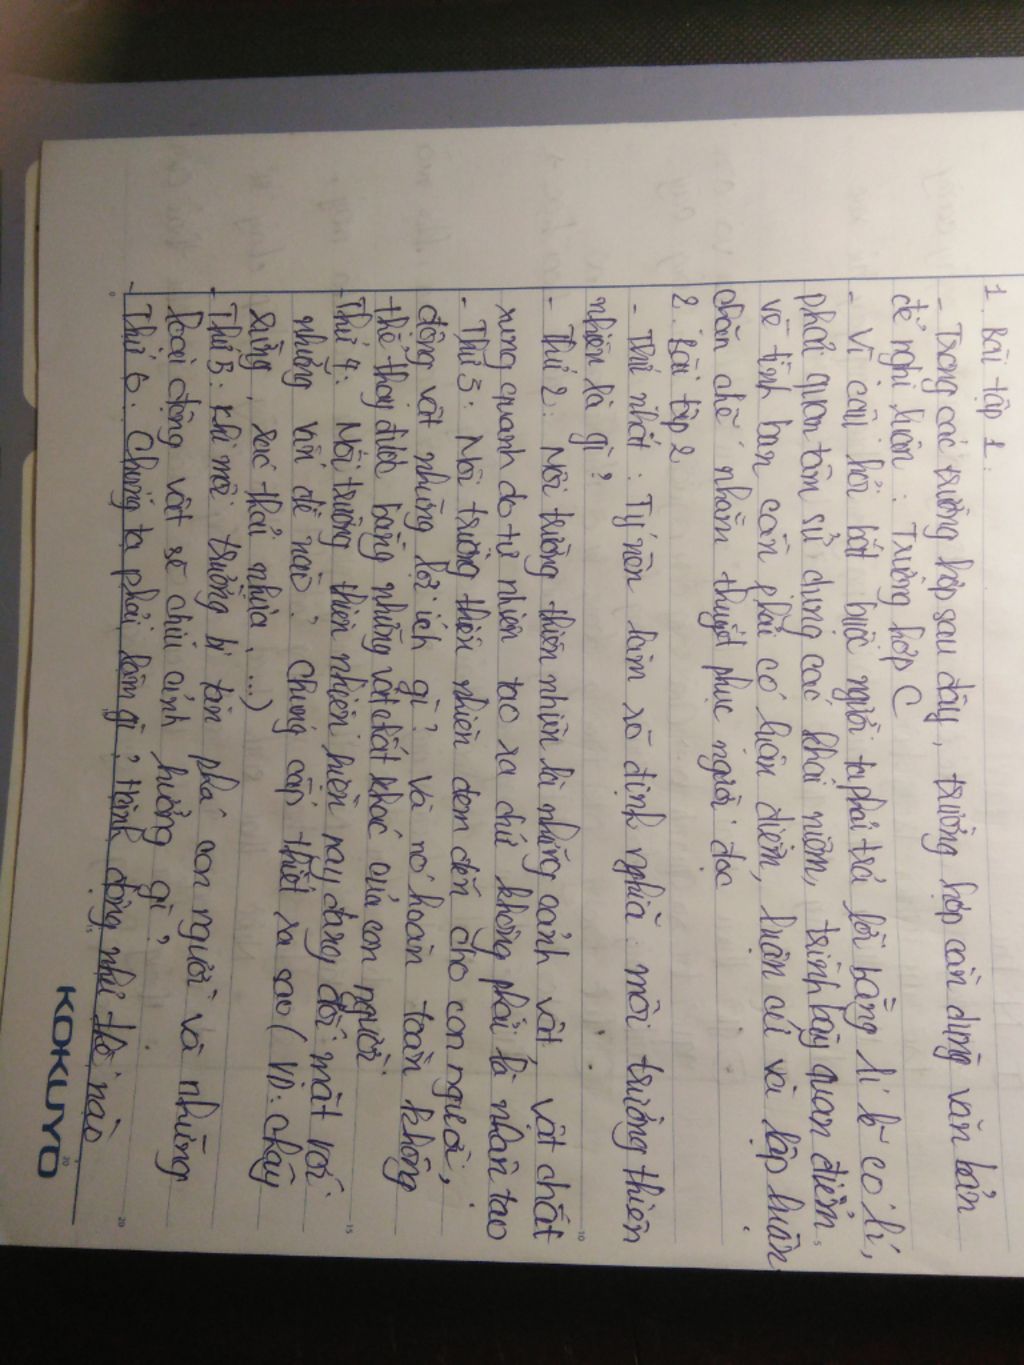 1. Bài tập 1:
- Trong các trường hợp sau đây, trường hợp cần dùng văn bản
để nghị luận: Trường hợp C
- Vì câu hỏi bắt buộc người ta phải trả lời bằng lí lẽ có lí,
phải quan tâm sử dụng các khái niệm, trình bày quan điểm
về tình bạn cần phải có luận điểm, luận cứ và lập luận
chặt chẽ nhằm thuyết phục người đọc
2. Bài tập 2
- Thứ nhất: Tự nên làm rõ định nghĩa môi trường thiên
nhiên là gì?
- Thứ 2: Môi trường thiên nhiên là những cảnh vật, vật chất
xung quanh do tự nhiên tạo ra chứ không phải là nhân tạo
- Thứ 3: Môi trường thiên nhiên đem đến cho con người,
động vật những lợi ích gì? Và nó hoàn toàn không
thể thay được bằng những vật chất khác của con người
- Thứ 4: Môi trường thiên nhiên hiện nay đang đối mặt với
những vấn đề nào? Chúng cấp thiết ra sao (VD: cháy
rừng, rác thải nhựa,...)
- Thứ 5: Khi môi trường bị tàn phá con người và những
loài động vật sẽ chịu ảnh hưởng gì?
- Thứ 6: Chúng ta phải làm gì? Hành động như thế nào
KOKUYO